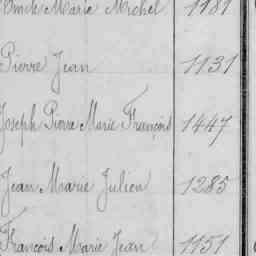 Emile Marie Michel 1181
Pierre Jean 1131
Joseph Pierre Marie François 1447
Jean Marie Julien 1285
François Marie Jean 1151